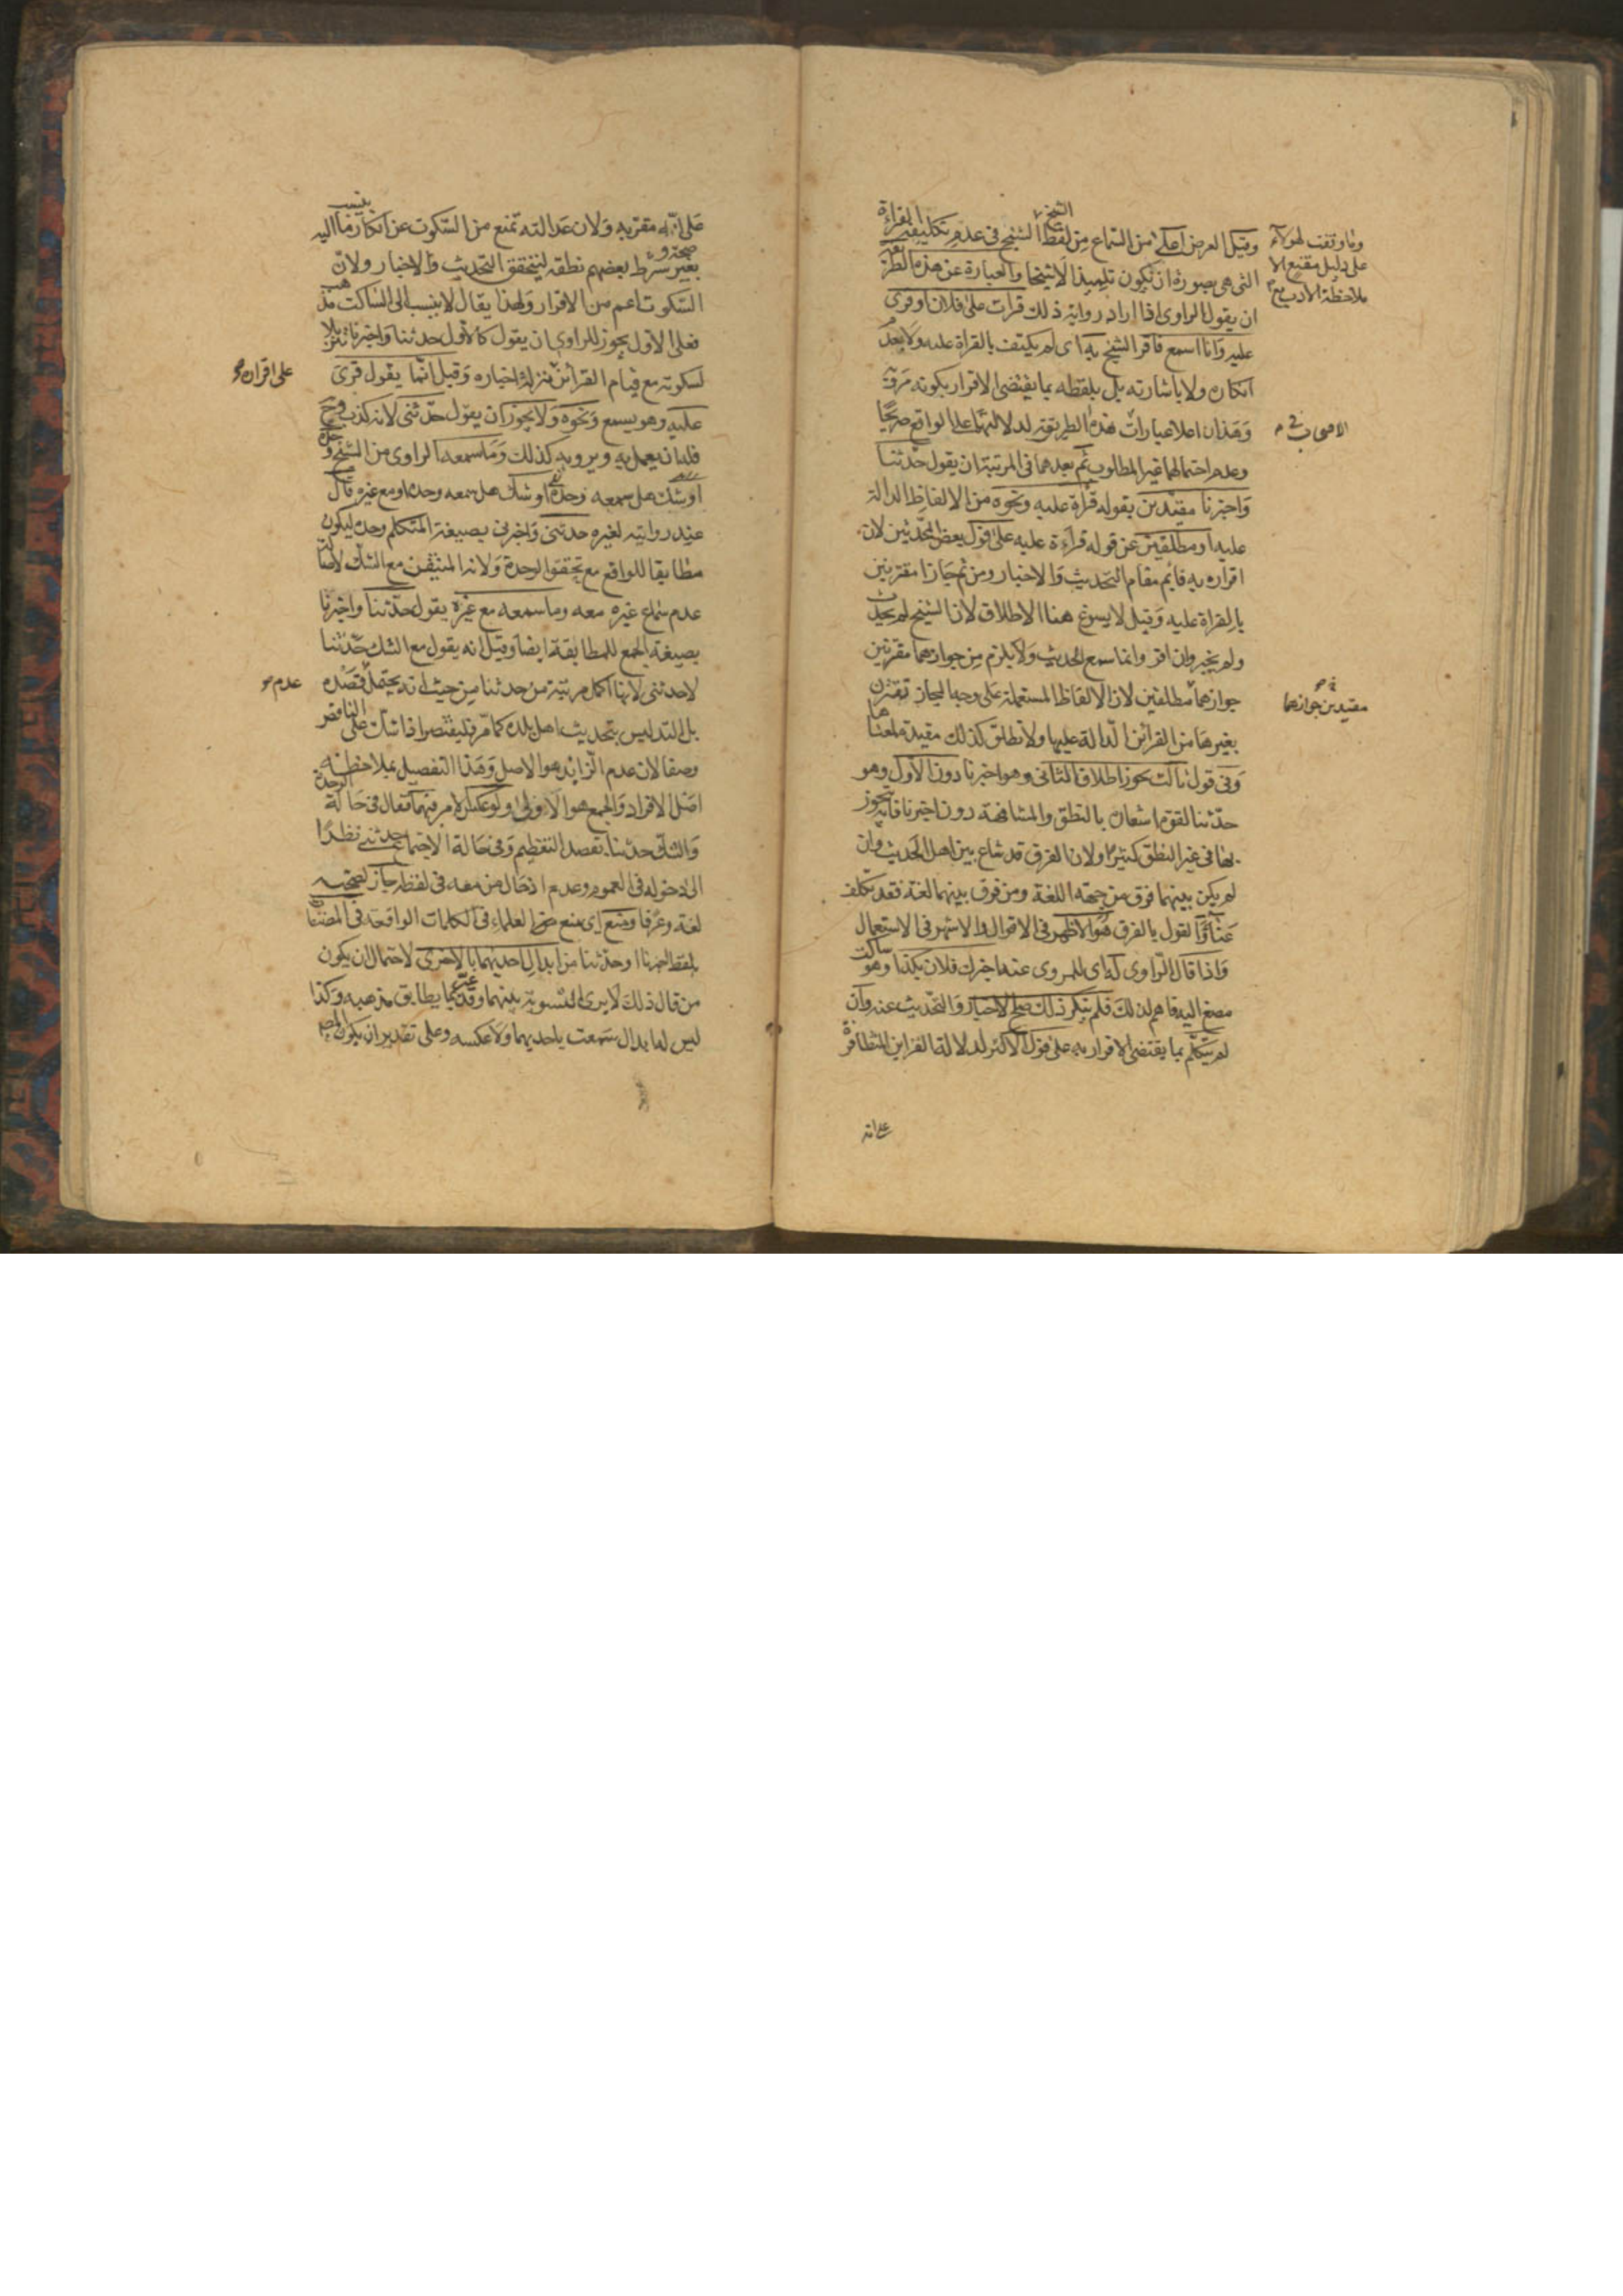 وقيل العرض اعلى من السماع من لفظ الشيخ في عدم تكليفه القراءة
التي هي بصورة ان يكون تلميذا لا شيخا والعبارة عن هذه الطريقة
ان يقول الراوي اذا اراد رواية ذلك قرات على فلان او قرئ
عليه وانا اسمع فاقر الشيخ به اي لم يكتف بالقراة عليه ولا بعدم
انكاره ولا باشارته بل بلفظه بما يقتضي الاقرار بكونه مرويه
وهذان اعلا عبارات هذه الطريقة لدلالتهما على الواقع صريحا
وعدم احتمالهما غير المطلوب ثم بعدهما في المرتبة ان يقول حدثنا
واخبرنا مقيدين بقوله قراة عليه ونحوه من الالفاظ الدالة
عليه او مطلقين عن قوله قراءة عليه على قول بعض المحدثين لان
اقراره به قايم مقام التحديث والاخبار ومن ثم جازا مقترنين
بالقراة عليه وقيل لا يسوغ هنا الاطلاق لان الشيخ لم يحدث
ولم يخبر وان اقر وانما سمع الحديث ولا يلزم من جوازهما مقترنين
جوازهما مطلقين لان الالفاظ المستعملة على وجه المجاز تقترن
بغيرها من القرائن الدالة عليها ولا تطلق كذلك مقيدة معناها
وفي قول ثالث يجوز اطلاق الثاني وهو اخبرنا دون الاول وهو
حدثنا لقوة اشعاره بالنطق والمشافهة دون اخبرنا فانه يجوز
بها في غير النطق كثيرا ولان الفرق قد شاع بين اهل الحديث وان
لم يكن بينهما فرق من جهة اللغة ومن فرق بينهما لغة فقد تكلف
عناء والقول بالفرق هو الاظهر في الاقوال والاشهر في الاستعمال
واذا قال الراوي له اي للمروي عنه اخبرك فلان بكذا وهو ساكت
مصغ اليه فاهم لذلك فلم ينكر ذلك صح الاخبار والتحديث عنه وان
لم يتكلم بما يقتضي الاقرار به على قول الاكثر لدلالة القراين المتظافرة
على انه
وما وقفت لهولاء
على دليل مقنع الا
ملاحظة الادب مع
الاصحاب في
مقيدين جوازهما
على انه مقر به ولان عدالته تمنع من السكوت عن انكار ما ينسب اليه
بغير صحة وشرط بعضهم نطقه ليتحقق التحديث والاخبار ولان
السكوت اعم من الاقرار ولهذا يقال لا ينسب الى الساكت مذهب
فعلى الاول يجوز للراوي ان يقول كالاول حدثنا واخبرنا تنزيلا
لسكوته مع قيام القرائن منزلة اخباره وقيل انما يقول قرئ
عليه وهو يسمع ونحوه ولا يجوز ان يقول حدثني لانه كذب وح
فله ان يعمل به ويرويه كذلك وما سمعه الراوي من الشيخ وحده
او شك هل سمعه وحده او شك هل سمعه وحده او مع غيره قال
عند روايته لغيره حدثني واخبرني بصيغة المتكلم وحده ليكون
مطابقا للواقع مع تحقق الوحدة ولانه المتيقن مع الشك لاصالة
عدم سماع غيره معه وما سمعه مع غيره يقول حدثنا واخبرنا
بصيغة الجمع للمطابقة ايضا وقيل انه يقول مع الشك حدثنا
لا حدثني لانها اكمل مرتبة من حدثنا من حيث انه يحتمل قصده
بل التدليس بتحديث اهل بلده كما مر فليقتصر اذا شك على الناقص
وصفا لان عدم الزايد هو الاصل وهذا التفصيل بملاحظة
اصل الافراد والجمع هو الاولى ولو عكس الامر فيهما فقال في حالة الوحدة
والشك حدثنا بقصد التعظيم وفي حالة الاجتماع حدثني نظرا
الى دخوله في العموم وعدم ادخال من معه في لفظه جاز لصحته
لغة وعرفا ومنع اي منع العلماء في الكلمات الواقعة في المصنفات
بلفظ اخبرنا او حدثنا من ابدال احديهما بالاخرى لاحتمال ان يكون
من قال ذلك لا يرى التسوية بينهما وقد عبر بما يطابق مذهبه وكذا
ليس له ابدال سمعت باحديهما ولا عكسه وعلى تقدير ان يكون
على اقرانه
عدم